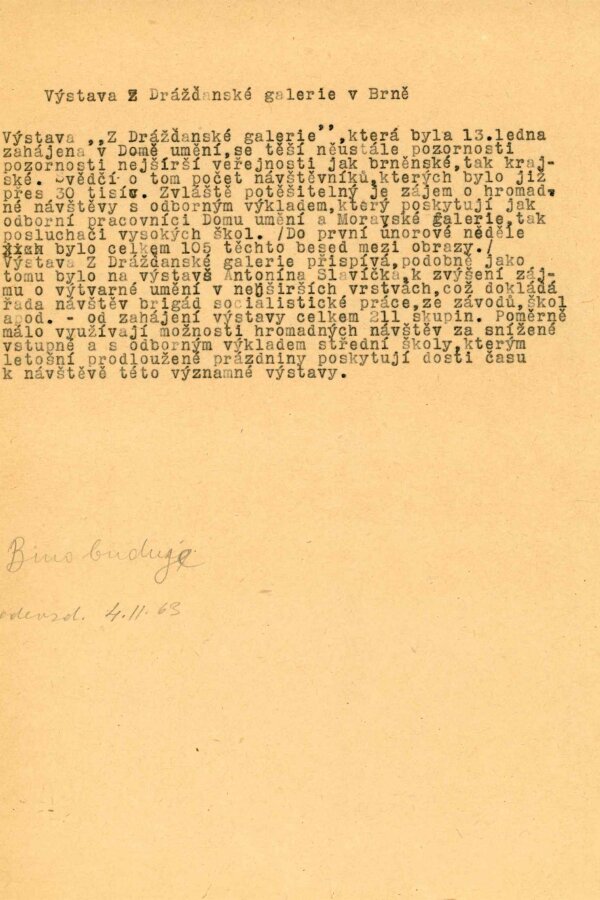 Výstava Z Drážďanské galerie v Brně
Výstava ,,Z Drážďanské galerie'',která byla 13.ledna
zahájena v Domě umění,se těší neustálé pozornosti
pozornosti nejširší veřejnosti jak brněnské,tak kraj-
ské. Svědčí o tom počet návštěvníků,kterých bylo již
přes 30 tisíc. Zvláště potěšitelný je zájem o hromad-
né návštěvy s odborným výkladem,který poskytují jak
odborní pracovníci Domu umění a Moravské galerie,tak
posluchači vysokých škol. /Do první únorové neděle
bylo celkem 105 těchto besed mezi obrazy./
Výstava Z Drážďanské galerie přispívá,podobně jako
tomu bylo na výstavě Antonína Slavíčka,k zvýšení záj-
mu o výtvarné umění v nejširších vrstvách,což dokládá
řada návštěv brigád socialistické práce,ze závodů,škol
apod. - od zahájení výstavy celkem 211 skupin. Poměrně
málo využívají možnosti hromadných návštěv za snížené
vstupné a s odborným výkladem střední školy,kterým
letošní prodloužené prázdniny poskytují dosti času
k návštěvě této významné výstavy.
buduje
4.II.63